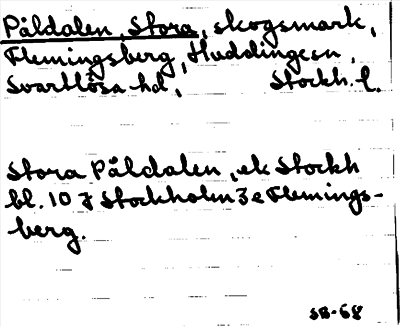 Påldalen, Stora, skogsmark,
Flemingsberg, Huddinge sn,
Svartlösa hd, Stockh. l.
Stora Påldalen, ek Stockh
bl. 10 I Stockholm 3 e Flemings-
berg.
SB-68